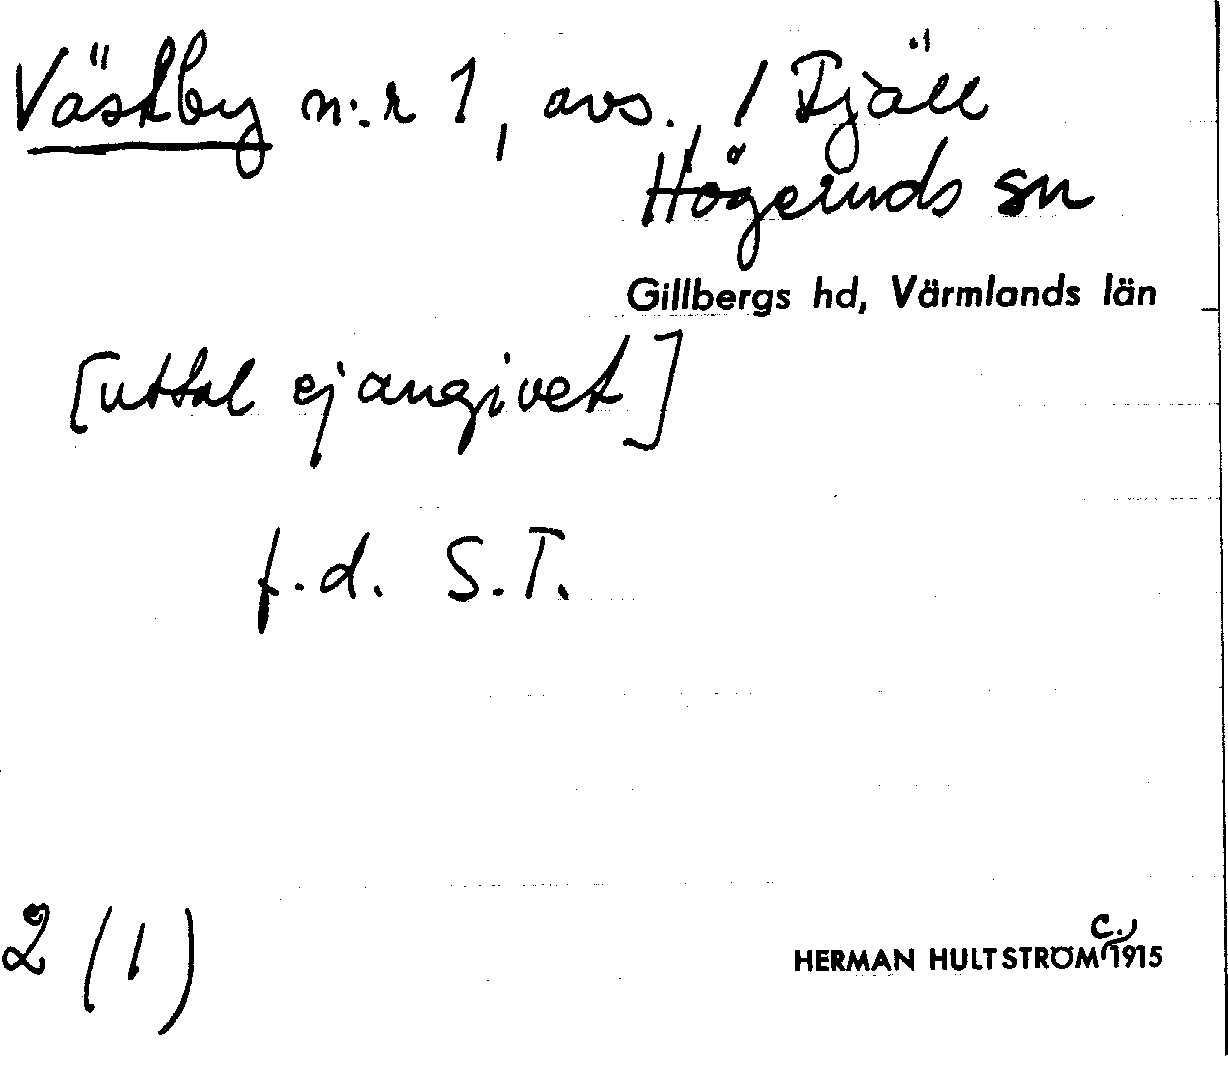 Västby n:r 1, avs. / Fjäll
Högeruds sn
Gillbergs hd, Värmlands län
[uttal ej angivet]
f.d. S.T.
2 (1)
HERMAN HULTSTRÖM c. 1915